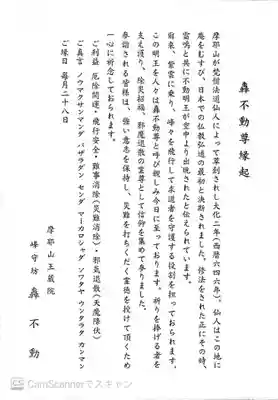 轟不動尊縁起
摩耶山が梵僧法道仙人によって草創されし大化二年(西暦六四六年)。仙人はこの地に
庵をむすび、日本での仏教弘通の最初と決断されました。修法をされた正にその時、
雷鳴と共に不動明王が空中より出現されたと伝えられています。
爾来、紫雲に乗り、峰々を飛行して求道者を守護する役割を担っております。
この明王を人々は轟不動尊と呼び親しみ今日に至っております。祈りを捧げる者を
支え護り、除災招福、邪魔退散の霊尊として信仰を集めて参りました。
参詣される皆様は、強い意志を保持し、災難を打ちくだく霊徳を授けて頂くため
一心に祈念しておられます。
ご利益 厄除開運・飛行安全・難事消除(災難消除)・邪気退散(天魔降伏)
ご真言 ノウマクサンマンダ バザラダン センダ マーカロシャダ ソワタヤ ウンタラタ カンマン
ご縁日 毎月二十八日
摩耶山王蔵院
峰守坊 轟不動
CamScannerでスキャン